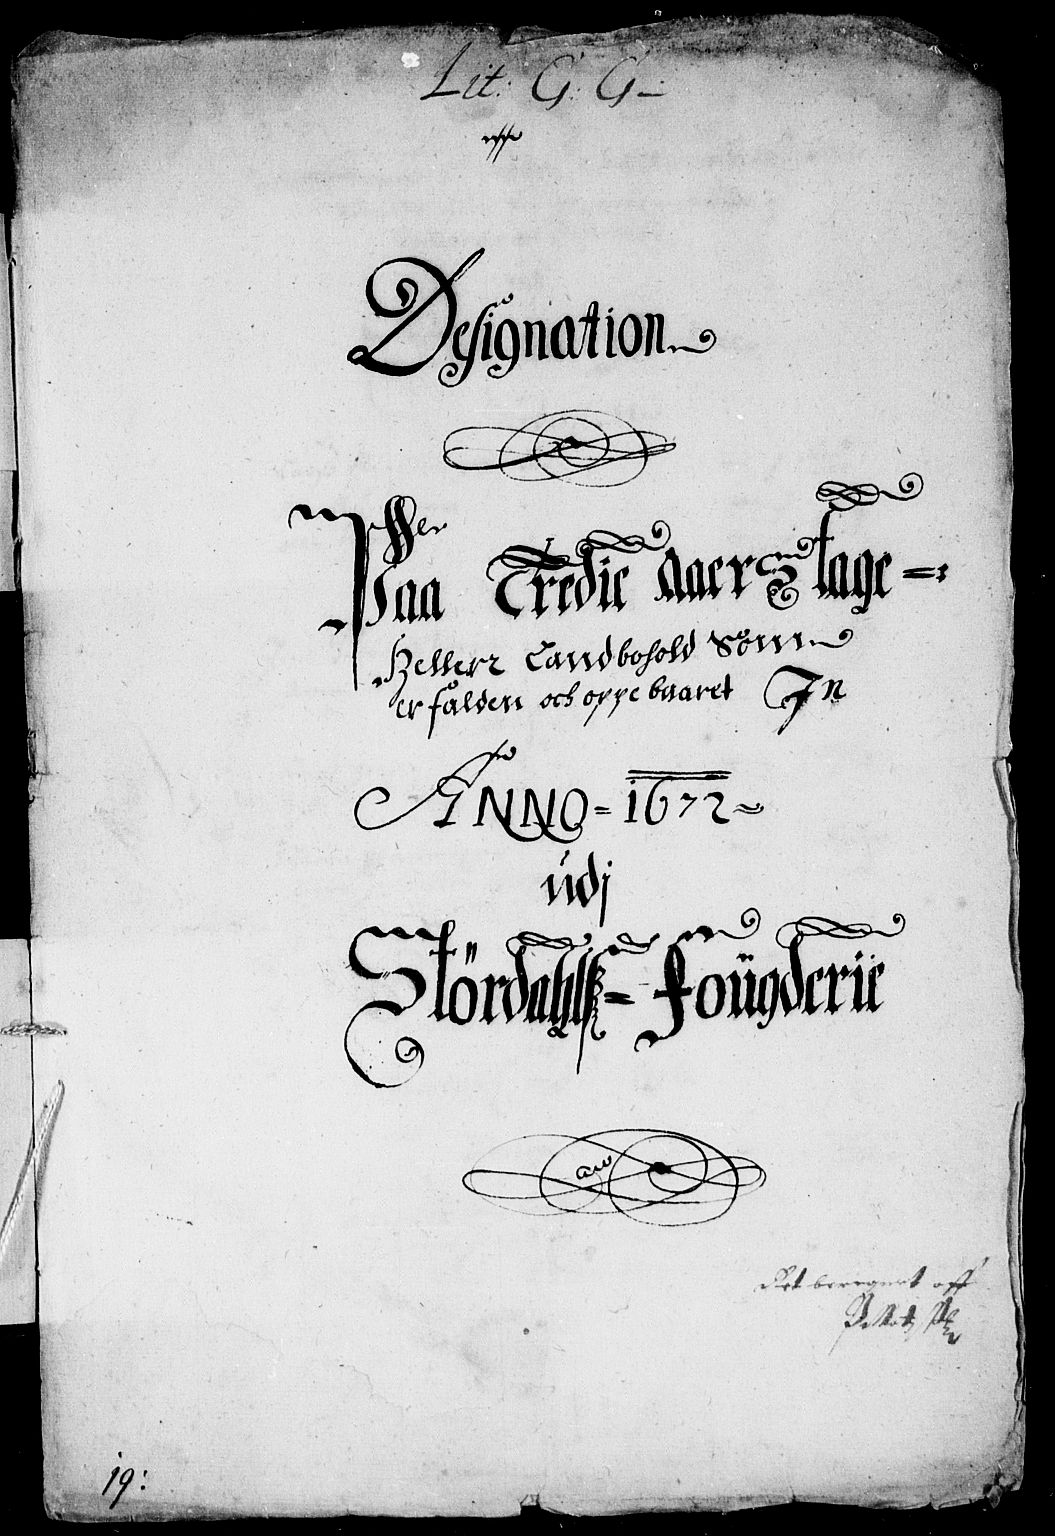 Lit: G: G
Designation
Paa Tredie Aaers tage=
Heller Landbohold Som
er falden och oppebaaret In
ANNO=1672
udj
Stördahlss= Foügderie
Ret beregnet aff
19: